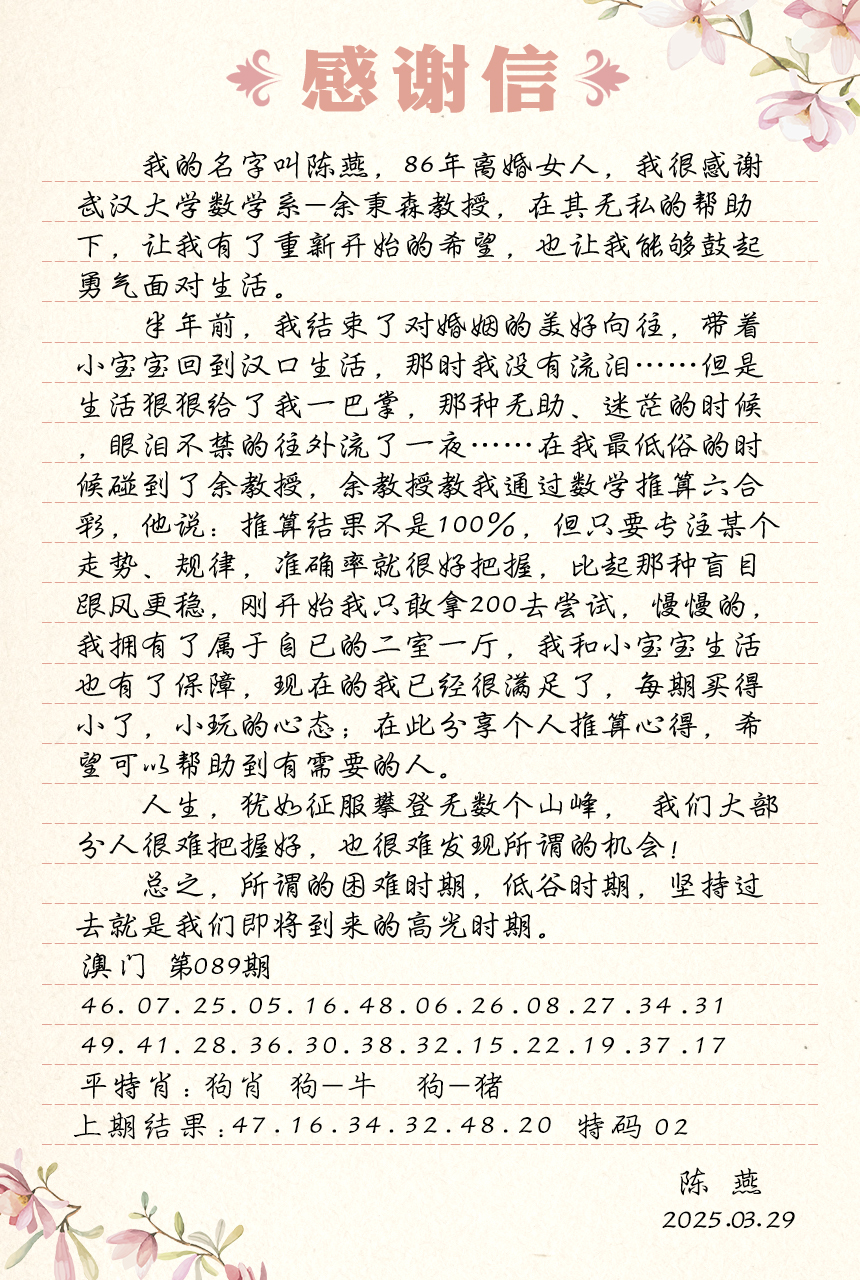 感谢信
我的名字叫陈燕，86年离婚女人，我很感谢
武汉大学数学系—余秉森教授，在其无私的帮助
下，让我有了重新开始的希望，也让我能够鼓起
勇气面对生活。
半年前，我结束了对婚姻的美好向往，带着
小宝宝回到汉口生活，那时我没有流泪……但是
生活狠狠给了我一巴掌，那种无助、迷茫的时候
，眼泪不禁的往外流了一夜……在我最低俗的时
候碰到了余教授，余教授教我通过数学推算六合
彩，他说：推算结果不是100%，但只要专注某个
走势、规律，准确率就很好把握，比起那种盲目
跟风更稳，刚开始我只敢拿200去尝试，慢慢的，
我拥有了属于自已的二室一厅，我和小宝宝生活
也有了保障，现在的我已经很满足了，每期买得
小了，小玩的心态；在此分享个人推算心得，希
望可以帮助到有需要的人。
人生，犹如征服攀登无数个山峰， 我们大部
分人很难把握好，也很难发现所谓的机会！
总之，所谓的困难时期，低谷时期，坚持过
去就是我们即将到来的高光时期。
澳门 第089期
46.07.25.05.16.48.06.26.08.27.34.31
49.41.28.36.30.38.32.15.22.19.37.17
平特肖：狗肖 狗—牛 狗—猪
上期结果：47.16.34.32.48.20 特码 02
陈 燕
2025.03.29